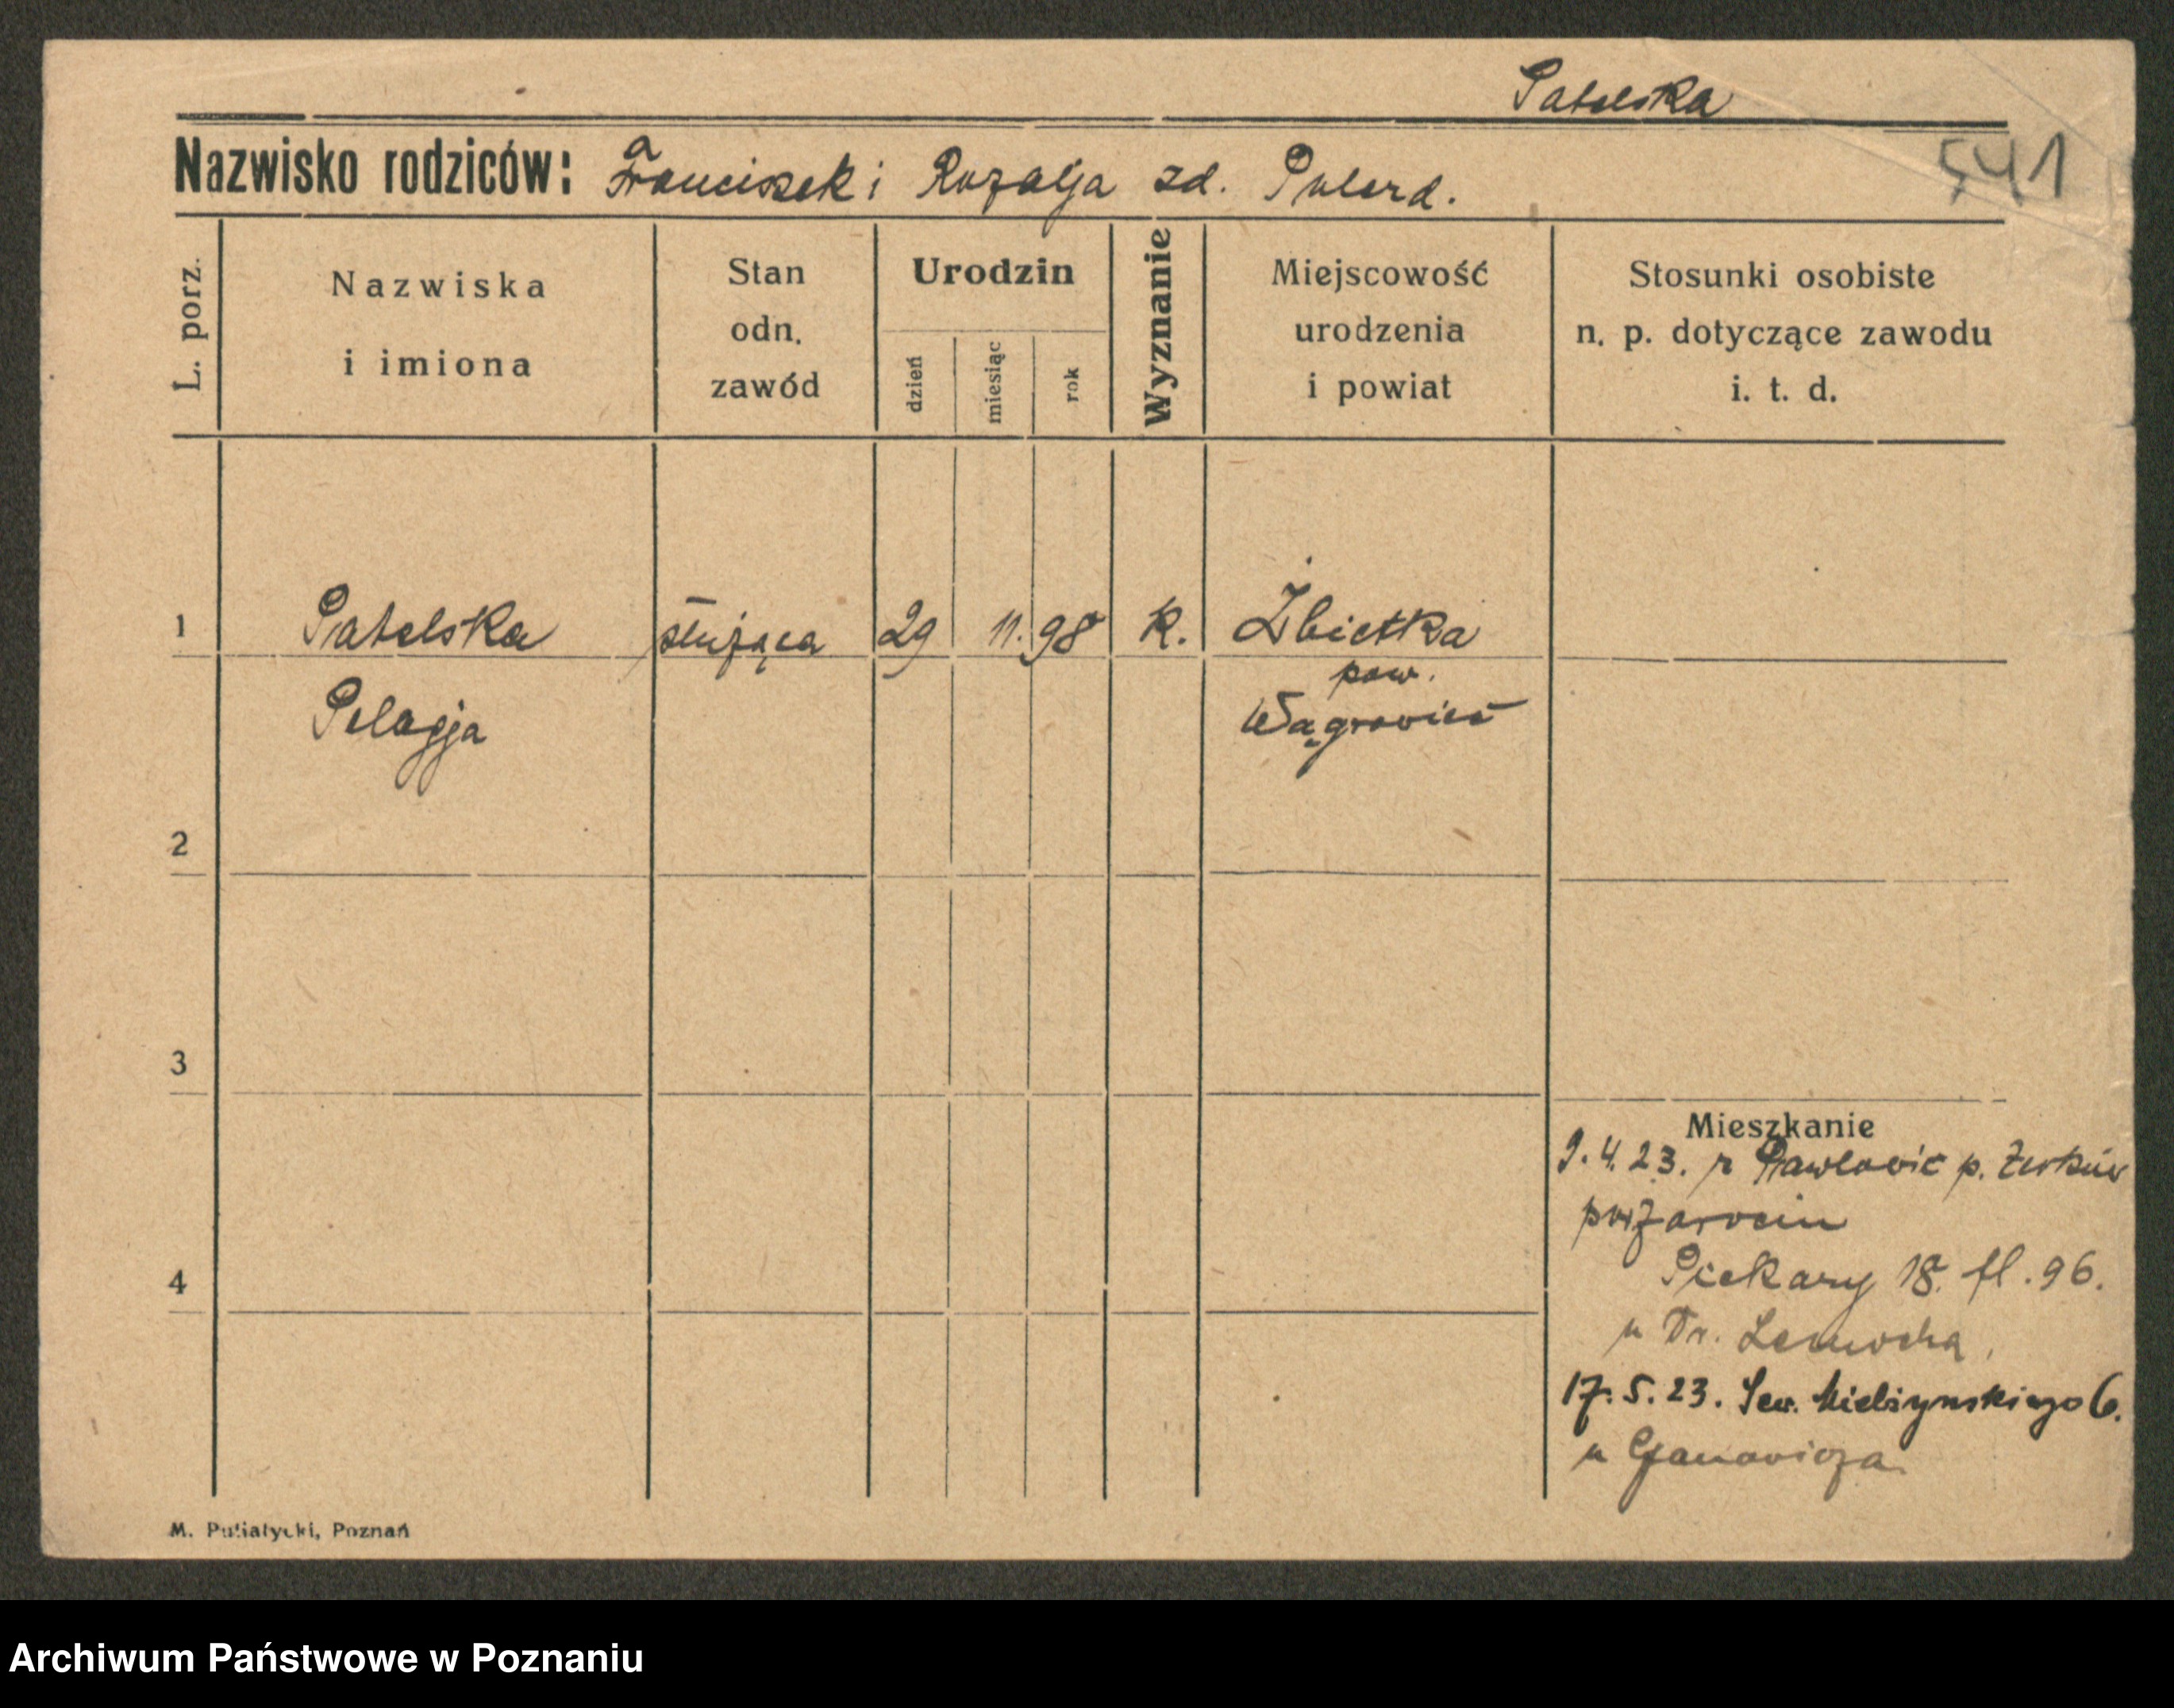 Patelska
541
Nazwisko rodziców: Franciszek i Rozalja zd.
L. porz.
Nazwiska i imiona
Stan odn. zawód
Urodzin
dzień
miesiąc
rok
Wyznanie
Miejscowość urodzenia i powiat
Stosunki osobiste n. p. dotyczące zawodu i. t. d.
1 Patelska służąca 29 11. 98 k. Żbietka
pow.
Pelagja Wągrowiec
2
3
Mieszkanie
9.4.23. z Pawłowic p. Żerków
4
Piekary 18. fl. 96.
u Dr.
17.5.23. Sew. Mielżynskiego 6.
u
M. Putiatycki, Poznań
Archiwum Państwowe w Poznaniu